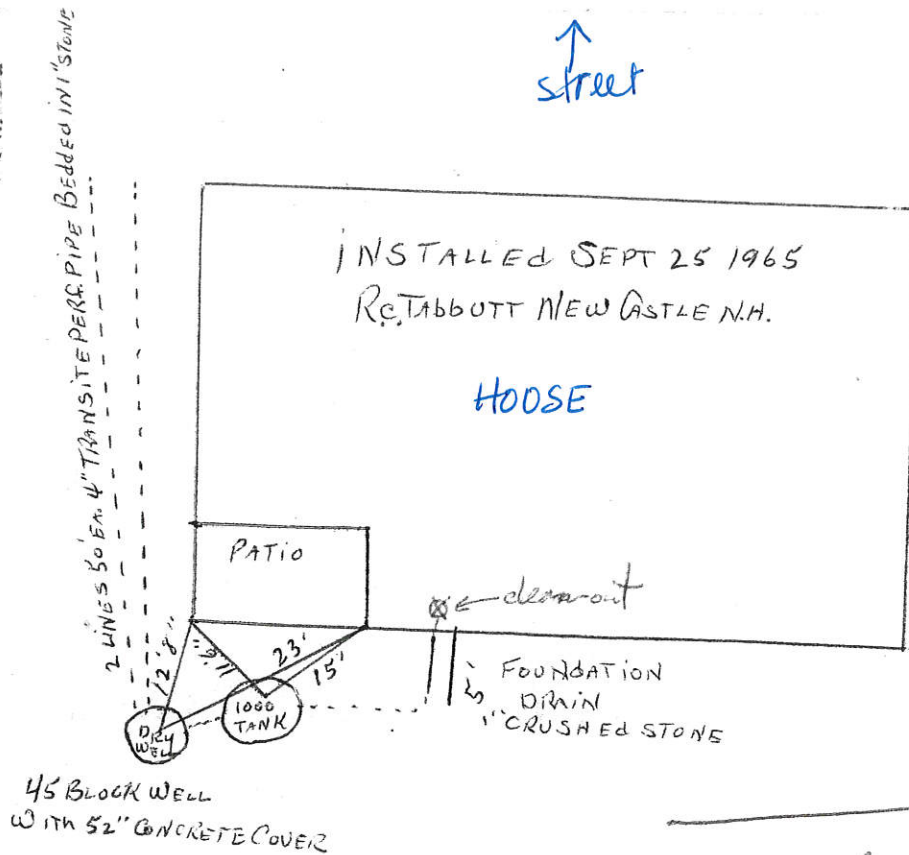 street
2 LINES 50' EA. 4" TRANSITE PERF. PIPE BEDDED IN 1" STONE
INSTALLED SEPT 25 1965
R.C. TABBUTT NEW CASTLE N.H.
HOUSE
PATIO
clean-out
12'8"
23'
15'
1000
TANK
DRY
WELL
FOUNDATION
DRAIN
1" CRUSHED STONE
45 BLOCK WELL
WITH 52" CONCRETE COVER